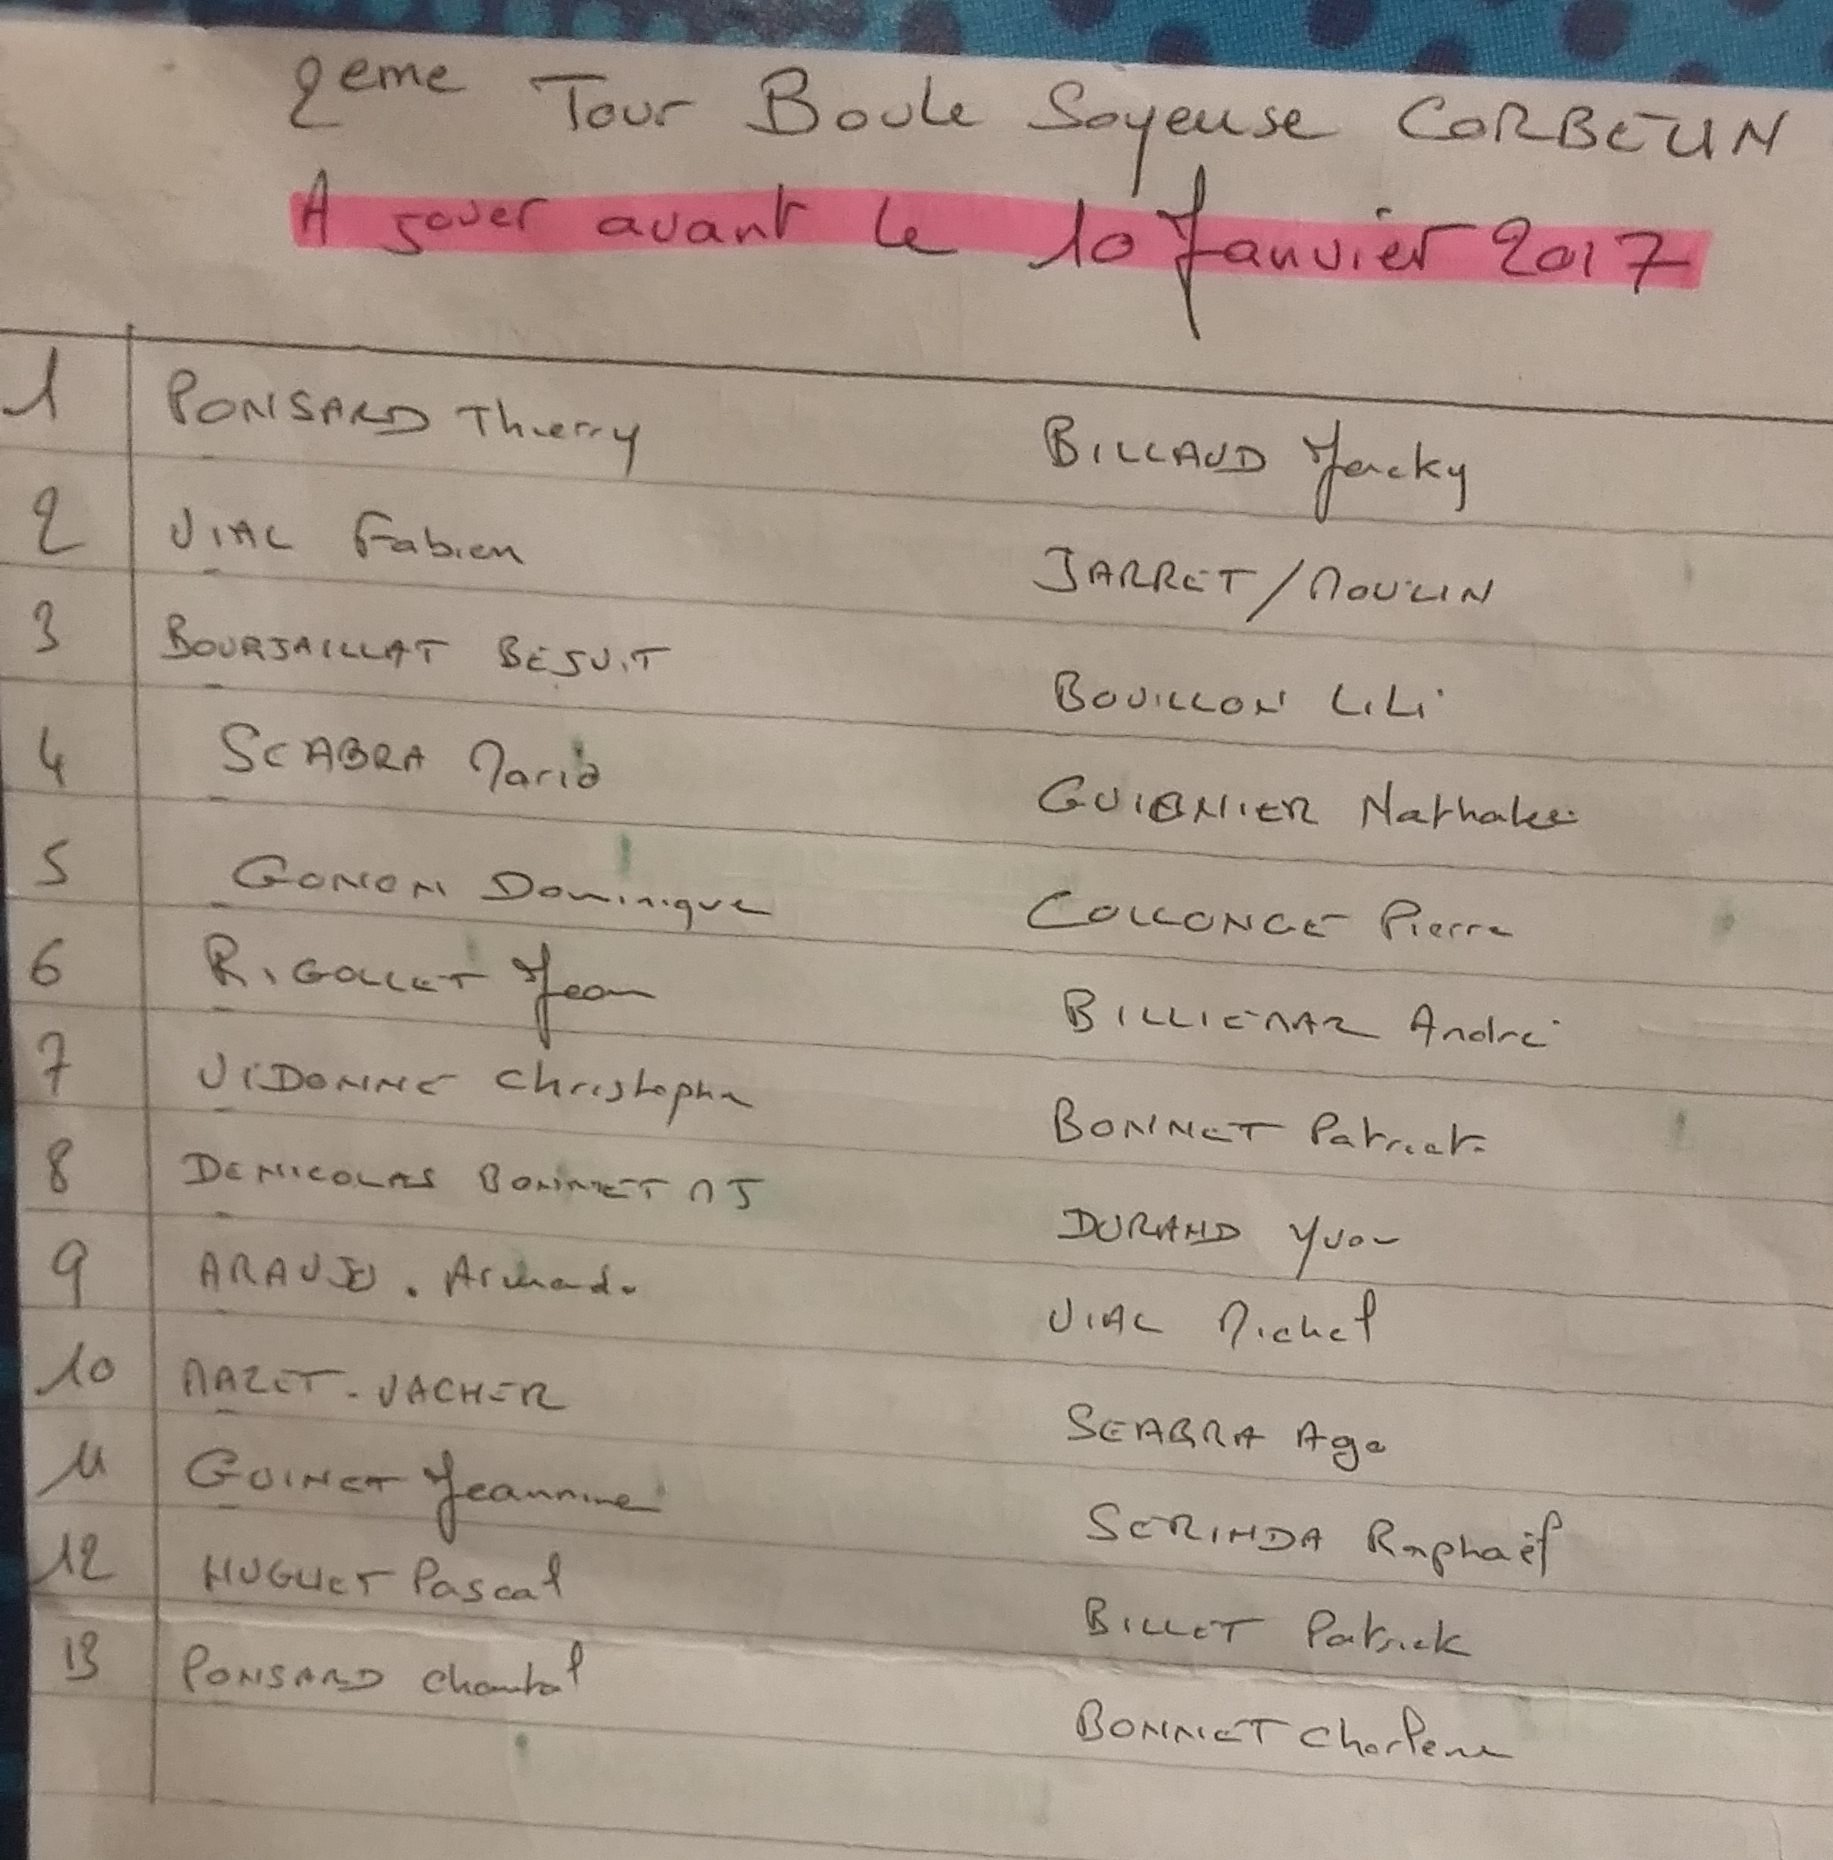 2eme Tour Boule Soyeuse CORBELIN
A jouer avant le 10 Janvier 2017
1 PONSARD Thierry BILLAUD Jacky
2 VIAL Fabien JARRET/MOULIN
3 BOURJAILLAT BESUIT BOUILLON LiLi
4 SEABRA Mario GUIGNIER Nathalie
5 GONON Dominique COLLONGE Pierre
6 RIGOLLET Jean BILLIEMAZ André
7 VIDONNE Christophe BONNET Patrick
8 DENICOLAS BONNET MJ DURAND Yvon
9 ARAUJO. Armando VIAL Michel
10 MAZET-VACHER SEABRA Ago
11 GUINET Jeannine SERINDA Raphaël
12 HUGUET Pascal BILLET Patrick
13 PONSARD Chantal BONNET Charlene